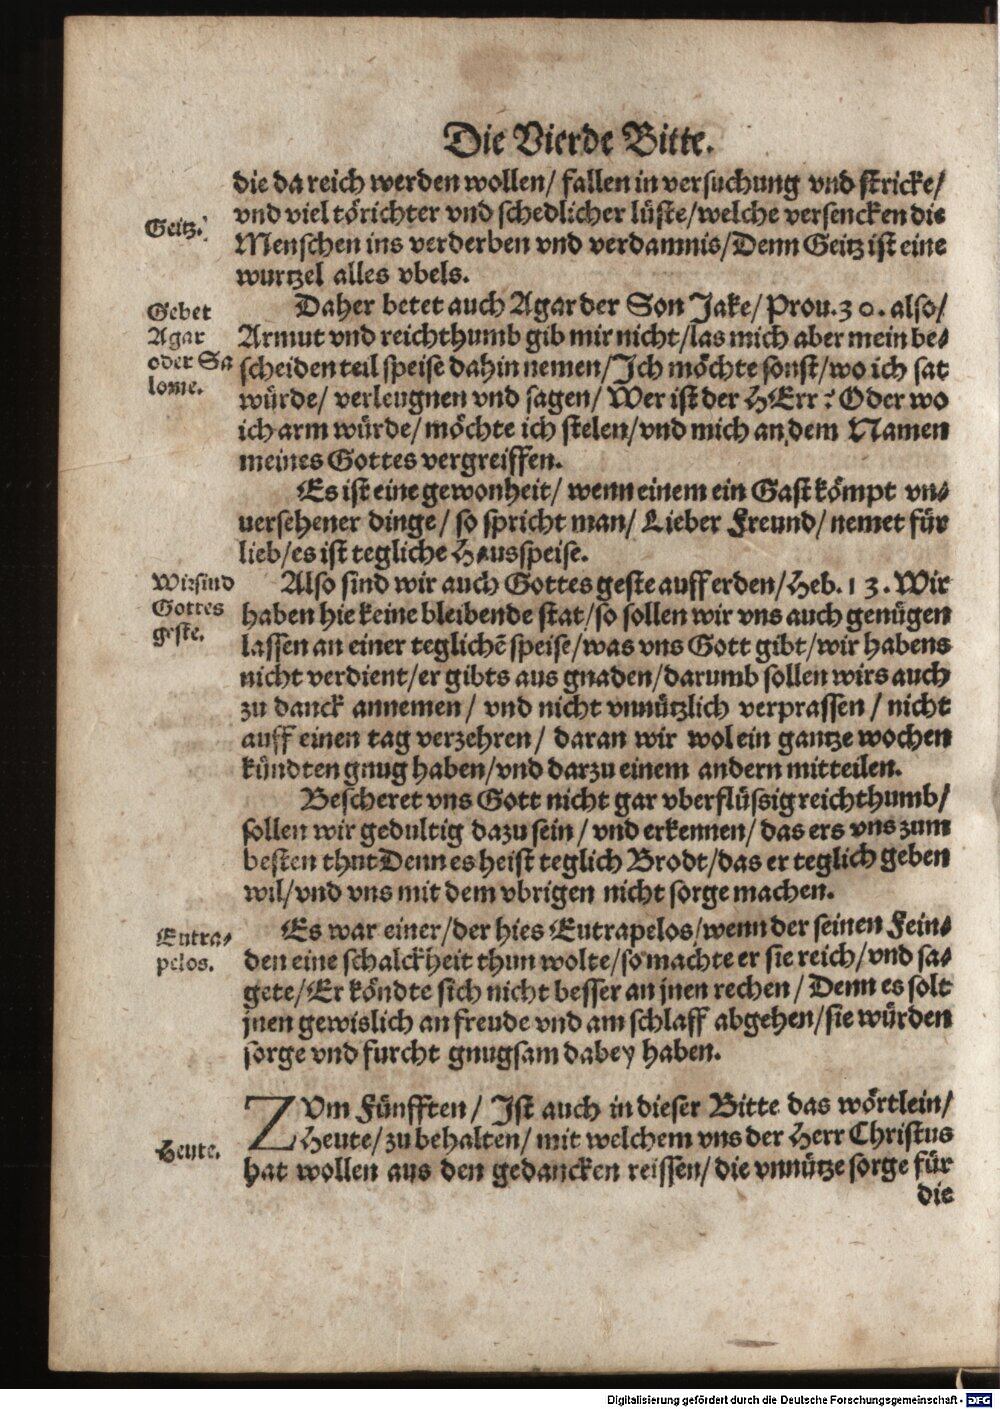 Die Vierde Bitte.
die da reich werden wollen/ fallen in versuchung vnd stricke/
vnd viel törichter vnd schedlicher lüste/welche versencken die
Geitz.
Menschen ins verderben vnd verdamnis/Denn Geitz ist eine
wurtzel alles vbels.
Daher betet auch Agar der Son Jake/ Prou.30. also/
Gebet
Agar
oder Sa
lome.
Armut vnd reichthumb gib mir nicht/las mich aber mein be-
scheiden teil speise dahin nemen/Ich möchte sonst/wo ich sat
würde/ verleugnen vnd sagen/ Wer ist der HErr? Oder wo
ich arm würde/möchte ich stelen/vnd mich an dem Namen
meines Gottes vergreiffen.
Es ist eine gewonheit/ wenn einem ein Gast kömpt vn-
uersehener dinge/ so spricht man/ Lieber Freund/nemet für
lieb/es ist tegliche Hausspeise.
Wir sind
Gottes
geste.
Also sind wir auch Gottes geste auff erden/Heb.13. Wir
haben hie keine bleibende stat/so sollen wir vns auch genügen
lassen an einer teglichē speise/was vns Gott gibt/wir habens
nicht verdient/er gibts aus gnaden/darumb sollen wirs auch
zu danck annemen/ vnd nicht vnnützlich verprassen/ nicht
auff einen tag verzehren/ daran wir wol ein gantze wochen
kündten gnug haben/vnd darzu einem andern mitteilen.
Bescheret vns Gott nicht gar vberflüssig reichthumb/
sollen wir gedultig dazu sein/ vnd erkennen/ das ers vns zum
besten thut Denn es heist teglich Brodt/das er teglich geben
wil/vnd vns mit dem vbrigen nicht sorge machen.
Eutra-
pelos.
Es war einer/der hies Eutrapelos/wenn der seinen Fein-
den eine schalckheit thun wolte/so machte er sie reich/vnd sa-
gete/Er köndte sich nicht besser an jnen rechen/ Denn es solt
jnen gewislich an freude vnd am schlaff abgehen/sie würden
sorge vnd furcht gnugsam dabey haben.
ZVm Fünfften/ Ist auch in dieser Bitte das wörtlein/
Heute/zu behalten/ mit welchem vns der Herr Christus
Heute.
hat wollen aus den gedancken reissen/die vnnütze sorge für
die
Digitalisierung gefördert durch die Deutsche Forschungsgemeinschaft - DFG